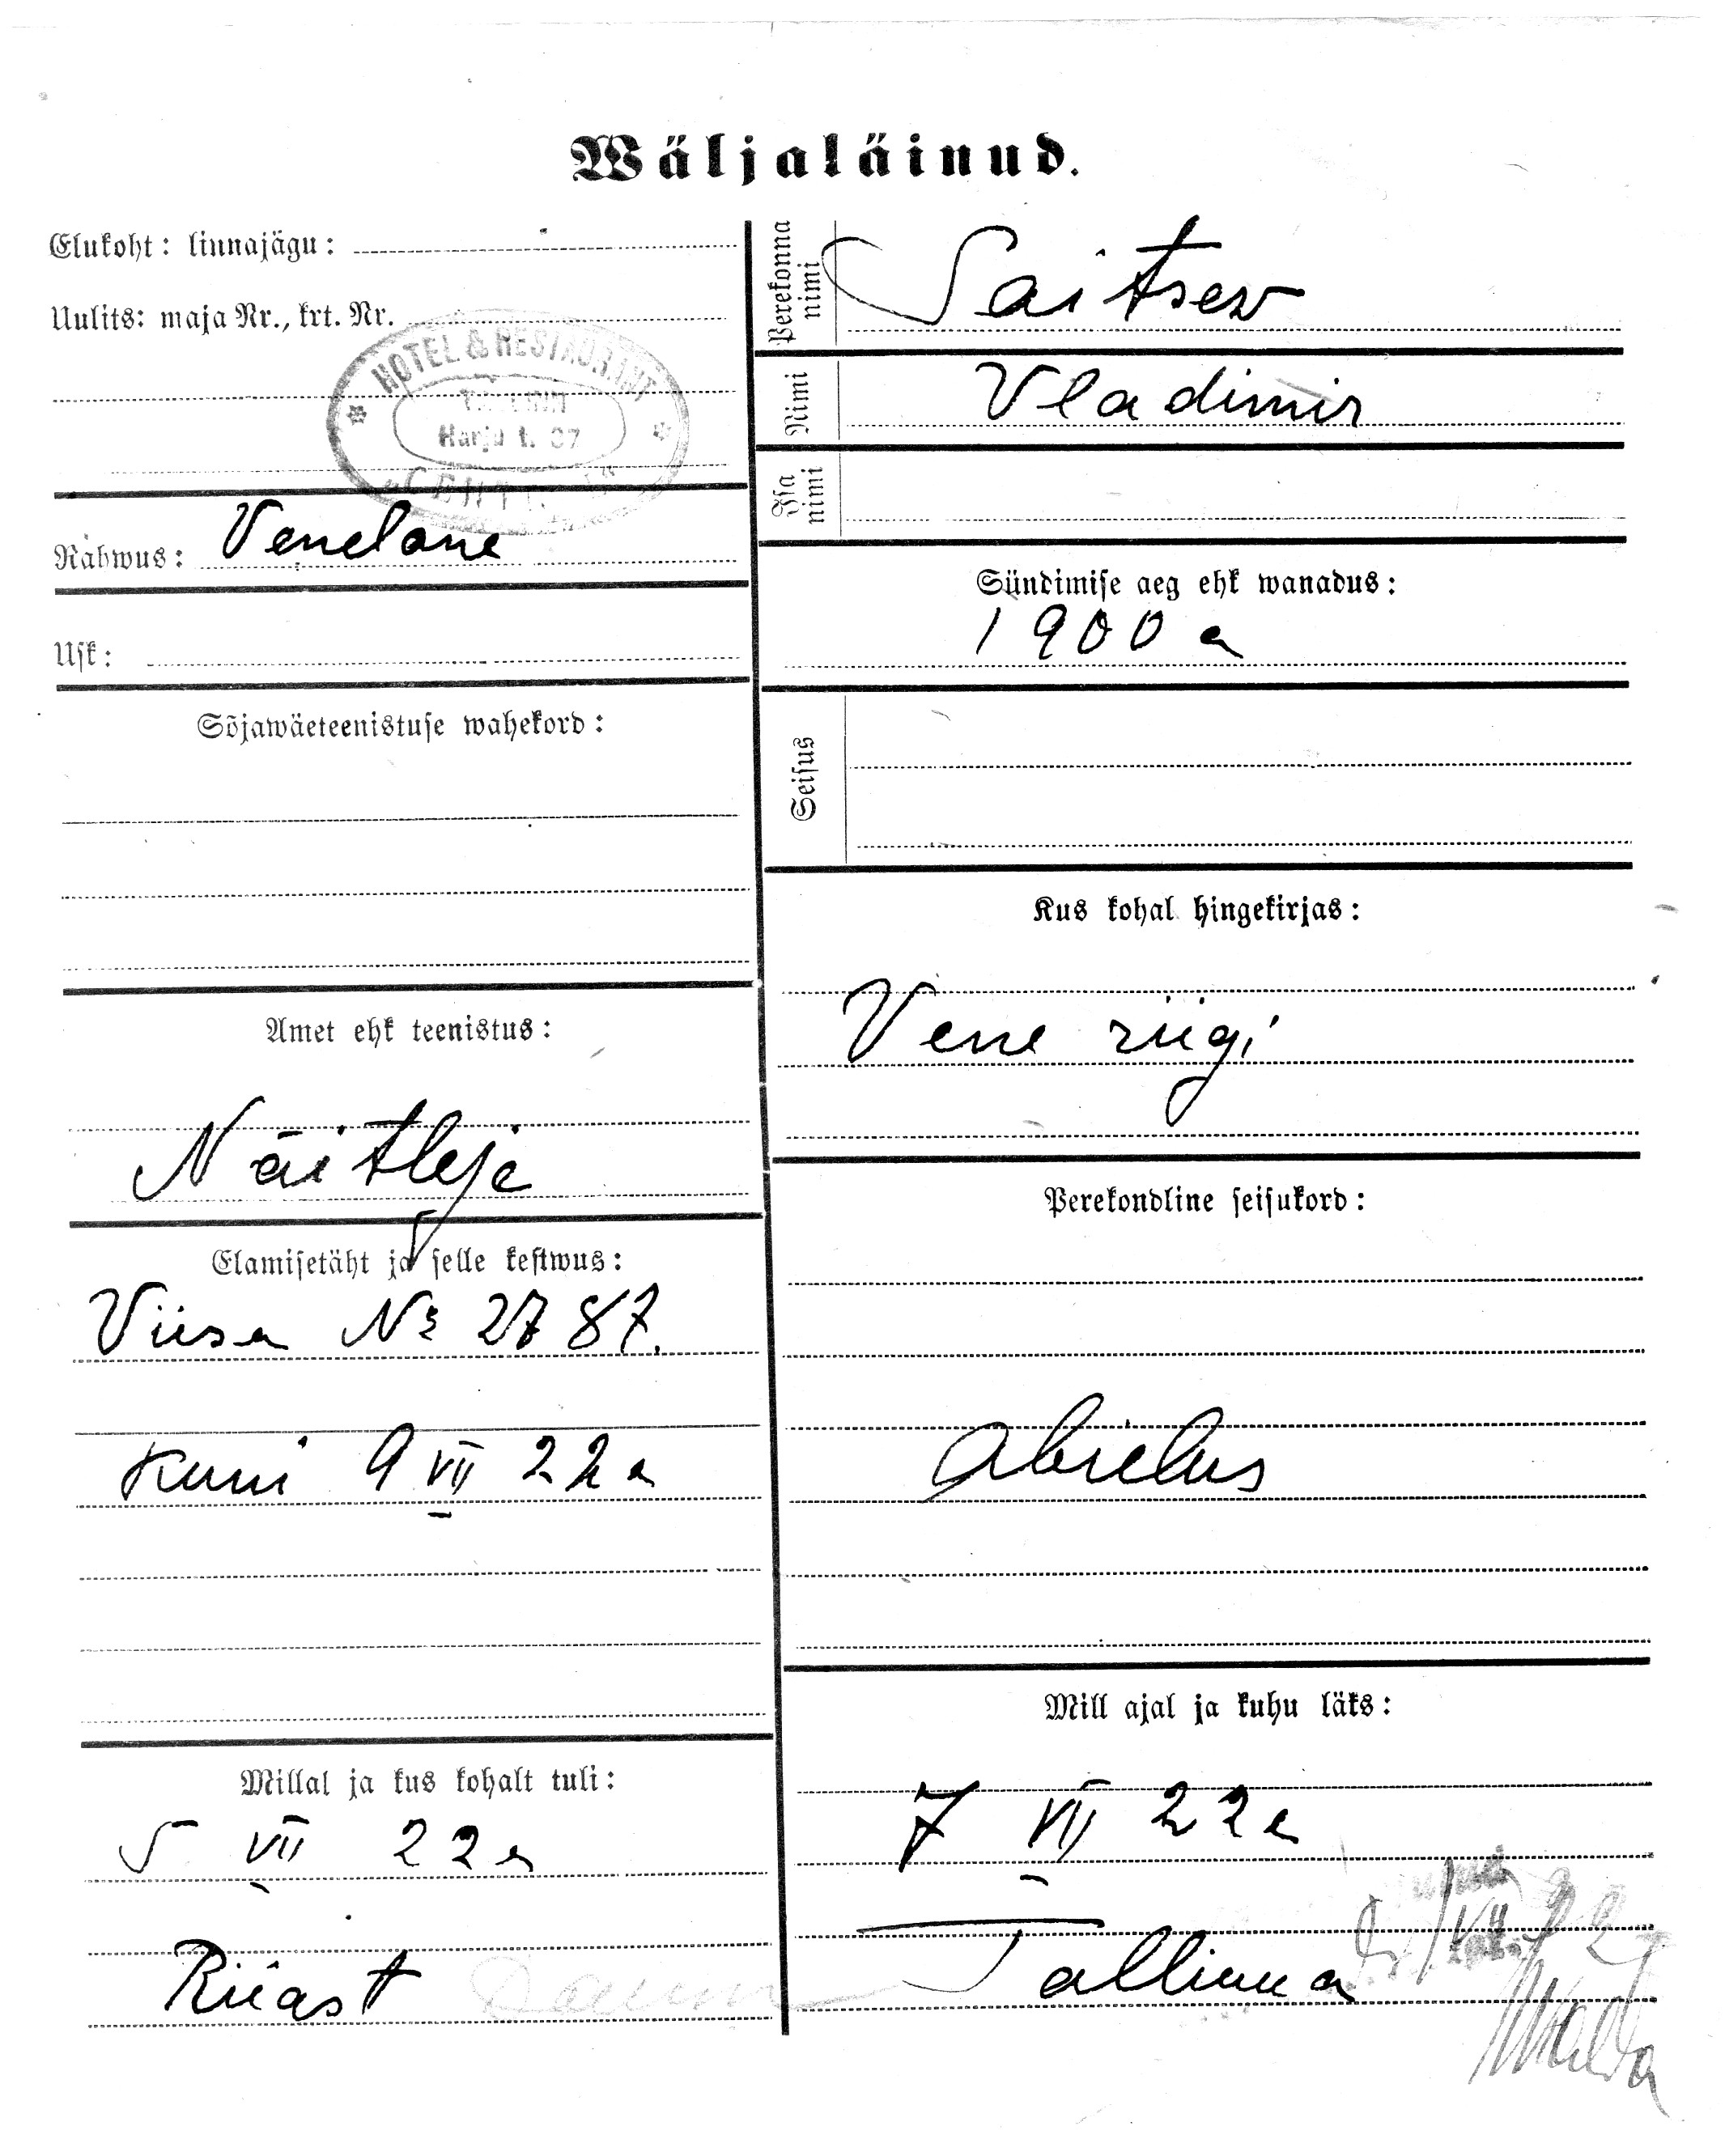 Wäljaläinud.
Elukoht: linnajägu:
Uulits: maja Nr., krt. Nr.
HOTEL & RESTAURANT
Harju t. 37
Rahwus: Venelane
Usk:
Sõjawäeteenistuse wahekord:
Amet ehk teenistus:
Näitleja
Elamisetäht ja selle kestwus:
Viisa № 2787.
Kuni 9 VII 22 a
Millal ja kus kohalt tuli:
5 VII 22 a
Riiast
Perekonna nimi
Saitsew
Nimi
Vladimir
Isa nimi
Sündimise aeg ehk wanadus:
1900 a
Seisus
Kus kohal hingekirjas:
Vene riigi
Perekondline seisukord:
abielus
Mill ajal ja kuhu läks:
7 VII 22 a
Tallinna